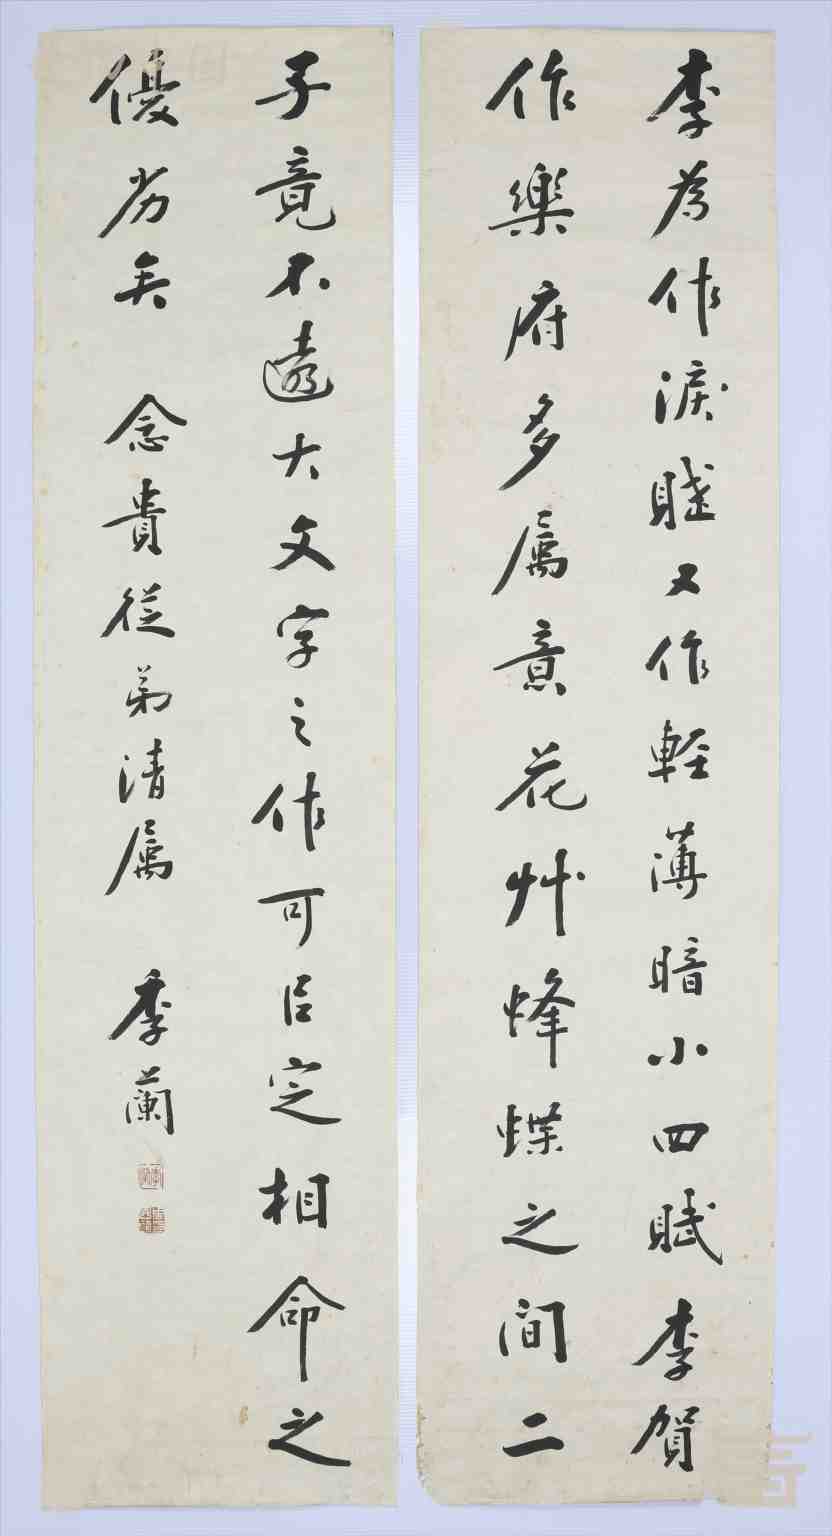 李為作淚賦又作輕薄暗小四賦李賀
作樂府多屬意花艸烽蝶之间二
子竟不遠大文字之作可㠯定相命之
優劣矣
念貴從弟清属
季蘭